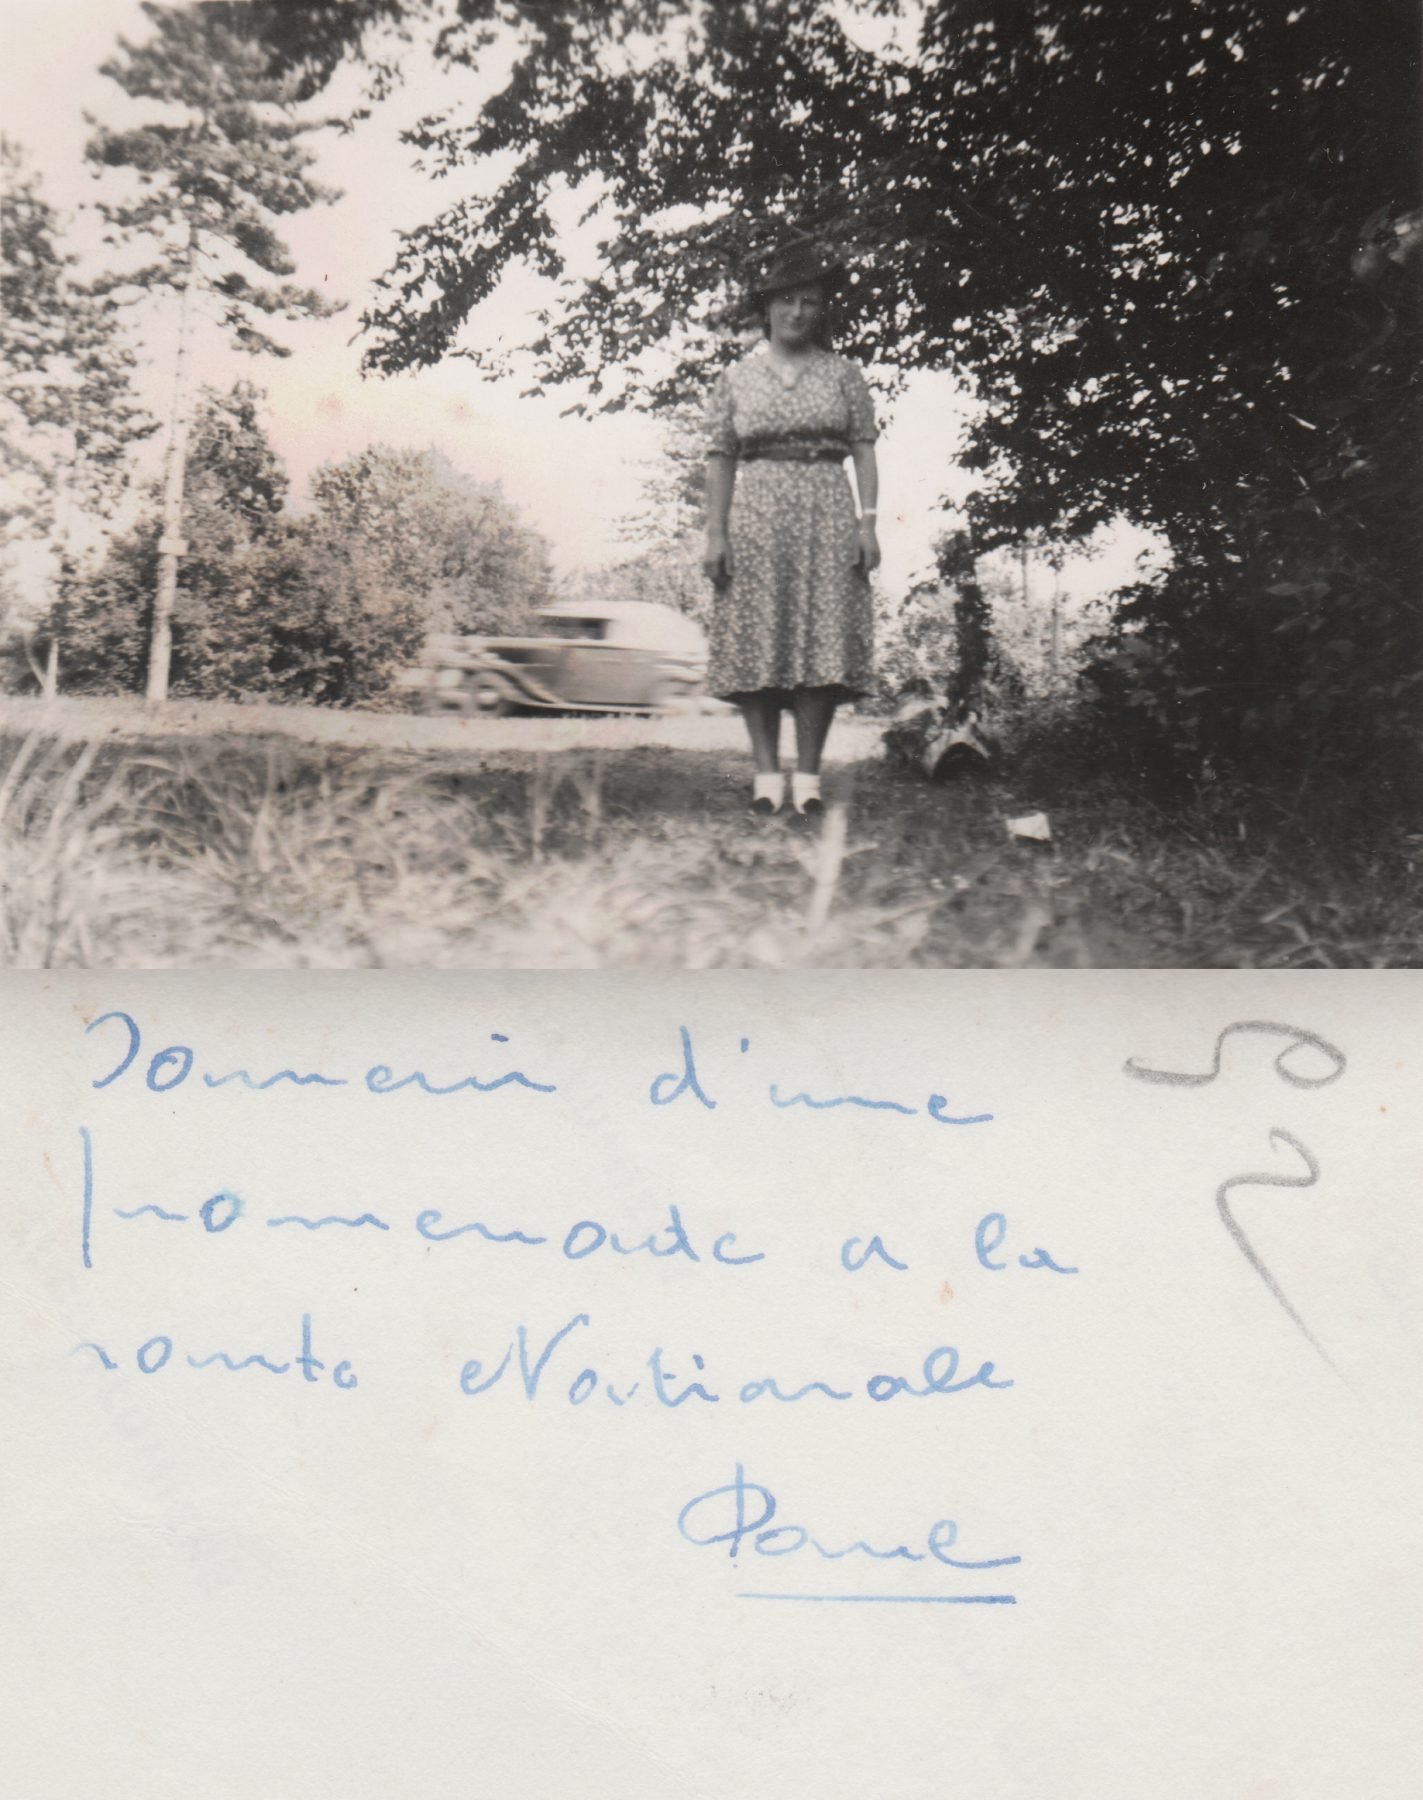 Souvenir d'une
promenade a la
route Nationale
Paul